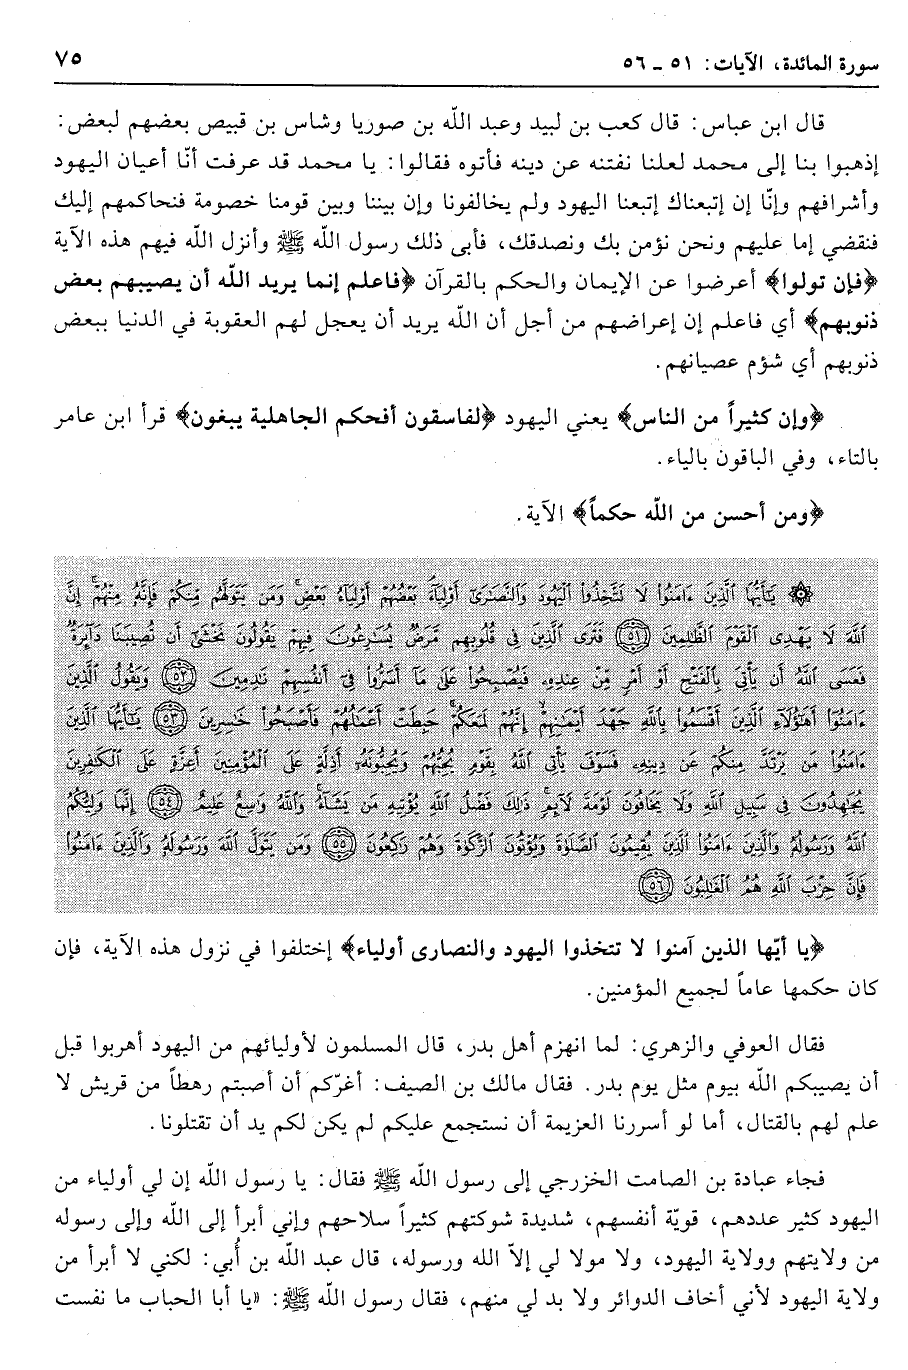 سورة المائدة، الآيات: ٥١ ـ ٥٦ ٧٥
قال ابن عباس: قال كعب بن لبيد وعبد الله بن صوريا وشاس بن قبيص بعضهم لبعض:
إذهبوا بنا إلى محمد لعلنا نفتنه عن دينه فأتوه فقالوا: يا محمد قد عرفت أنّا أعيان اليهود
وأشرافهم وإنّا إن إتبعناك إتبعنا اليهود ولم يخالفونا وإن بيننا وبين قومنا خصومة فنحاكمهم إليك
فنقضي إما عليهم ونحن نؤمن بك ونصدقك، فأبى ذلك رسول الله ﷺ وأنزل الله فيهم هذه الآية
﴿فإن تولوا﴾ أعرضوا عن الإيمان والحكم بالقرآن ﴿فاعلم إنما يريد الله أن يصيبهم بعض
ذنوبهم﴾ أي فاعلم إن إعراضهم من أجل أن الله يريد أن يعجل لهم العقوبة في الدنيا ببعض
ذنوبهم أي شؤم عصيانهم.
﴿وإن كثيراً من الناس﴾ يعني اليهود ﴿لفاسقون أفحكم الجاهلية يبغون﴾ قرأ ابن عامر
بالتاء، وفي الباقون بالياء.
﴿ومن أحسن من الله حكماً﴾ الآية.
۞ يَٰٓأَيُّهَا ٱلَّذِينَ ءَامَنُوا۟ لَا تَتَّخِذُوا۟ ٱلْيَهُودَ وَٱلنَّصَٰرَىٰٓ أَوْلِيَآءَ ۘ بَعْضُهُمْ أَوْلِيَآءُ بَعْضٍ ۚ وَمَن يَتَوَلَّهُم مِّنكُمْ فَإِنَّهُۥ مِنْهُمْ ۗ إِنَّ
ٱللَّهَ لَا يَهْدِى ٱلْقَوْمَ ٱلظَّٰلِمِينَ ﴿٥١﴾ فَتَرَى ٱلَّذِينَ فِى قُلُوبِهِم مَّرَضٌ يُسَٰرِعُونَ فِيهِمْ يَقُولُونَ نَخْشَىٰٓ أَن تُصِيبَنَا دَآئِرَةٌ ۚ
فَعَسَى ٱللَّهُ أَن يَأْتِىَ بِٱلْفَتْحِ أَوْ أَمْرٍ مِّنْ عِندِهِۦ فَيُصْبِحُوا۟ عَلَىٰ مَآ أَسَرُّوا۟ فِىٓ أَنفُسِهِمْ نَٰدِمِينَ ﴿٥٢﴾ وَيَقُولُ ٱلَّذِينَ
ءَامَنُوٓا۟ أَهَٰٓؤُلَآءِ ٱلَّذِينَ أَقْسَمُوا۟ بِٱللَّهِ جَهْدَ أَيْمَٰنِهِمْ ۙ إِنَّهُمْ لَمَعَكُمْ ۚ حَبِطَتْ أَعْمَٰلُهُمْ فَأَصْبَحُوا۟ خَٰسِرِينَ ﴿٥٣﴾ يَٰٓأَيُّهَا ٱلَّذِينَ
ءَامَنُوا۟ مَن يَرْتَدَّ مِنكُمْ عَن دِينِهِۦ فَسَوْفَ يَأْتِى ٱللَّهُ بِقَوْمٍ يُحِبُّهُمْ وَيُحِبُّونَهُۥٓ أَذِلَّةٍ عَلَى ٱلْمُؤْمِنِينَ أَعِزَّةٍ عَلَى ٱلْكَٰفِرِينَ
يُجَٰهِدُونَ فِى سَبِيلِ ٱللَّهِ وَلَا يَخَافُونَ لَوْمَةَ لَآئِمٍ ۚ ذَٰلِكَ فَضْلُ ٱللَّهِ يُؤْتِيهِ مَن يَشَآءُ ۚ وَٱللَّهُ وَٰسِعٌ عَلِيمٌ ﴿٥٤﴾ إِنَّمَا وَلِيُّكُمُ
ٱللَّهُ وَرَسُولُهُۥ وَٱلَّذِينَ ءَامَنُوا۟ ٱلَّذِينَ يُقِيمُونَ ٱلصَّلَوٰةَ وَيُؤْتُونَ ٱلزَّكَوٰةَ وَهُمْ رَٰكِعُونَ ﴿٥٥﴾ وَمَن يَتَوَلَّ ٱللَّهَ وَرَسُولَهُۥ وَٱلَّذِينَ ءَامَنُوا۟
فَإِنَّ حِزْبَ ٱللَّهِ هُمُ ٱلْغَٰلِبُونَ ﴿٥٦﴾
﴿يا أيّها الذين آمنوا لا تتخذوا اليهود والنصارى أولياء﴾ إختلفوا في نزول هذه الآية، فإن
كان حكمها عاماً لجميع المؤمنين.
فقال العوفي والزهري: لما انهزم أهل بدر، قال المسلمون لأوليائهم من اليهود أهربوا قبل
أن يصيبكم الله بيوم مثل يوم بدر. فقال مالك بن الصيف: أغرّكم أن أصبتم رهطاً من قريش لا
علم لهم بالقتال، أما لو أسررنا العزيمة أن نستجمع عليكم لم يكن لكم يد أن تقتلونا.
فجاء عبادة بن الصامت الخزرجي إلى رسول الله ﷺ فقال: يا رسول الله إن لي أولياء من
اليهود كثير عددهم، قويّة أنفسهم، شديدة شوكتهم كثيراً سلاحهم وإني أبرأ إلى الله وإلى رسوله
من ولايتهم وولاية اليهود، ولا مولا لي إلاّ الله ورسوله، قال عبد الله بن أُبي: لكني لا أبرأ من
ولاية اليهود لأني أخاف الدوائر ولا بد لي منهم، فقال رسول الله ﷺ: «يا أبا الحباب ما نفست